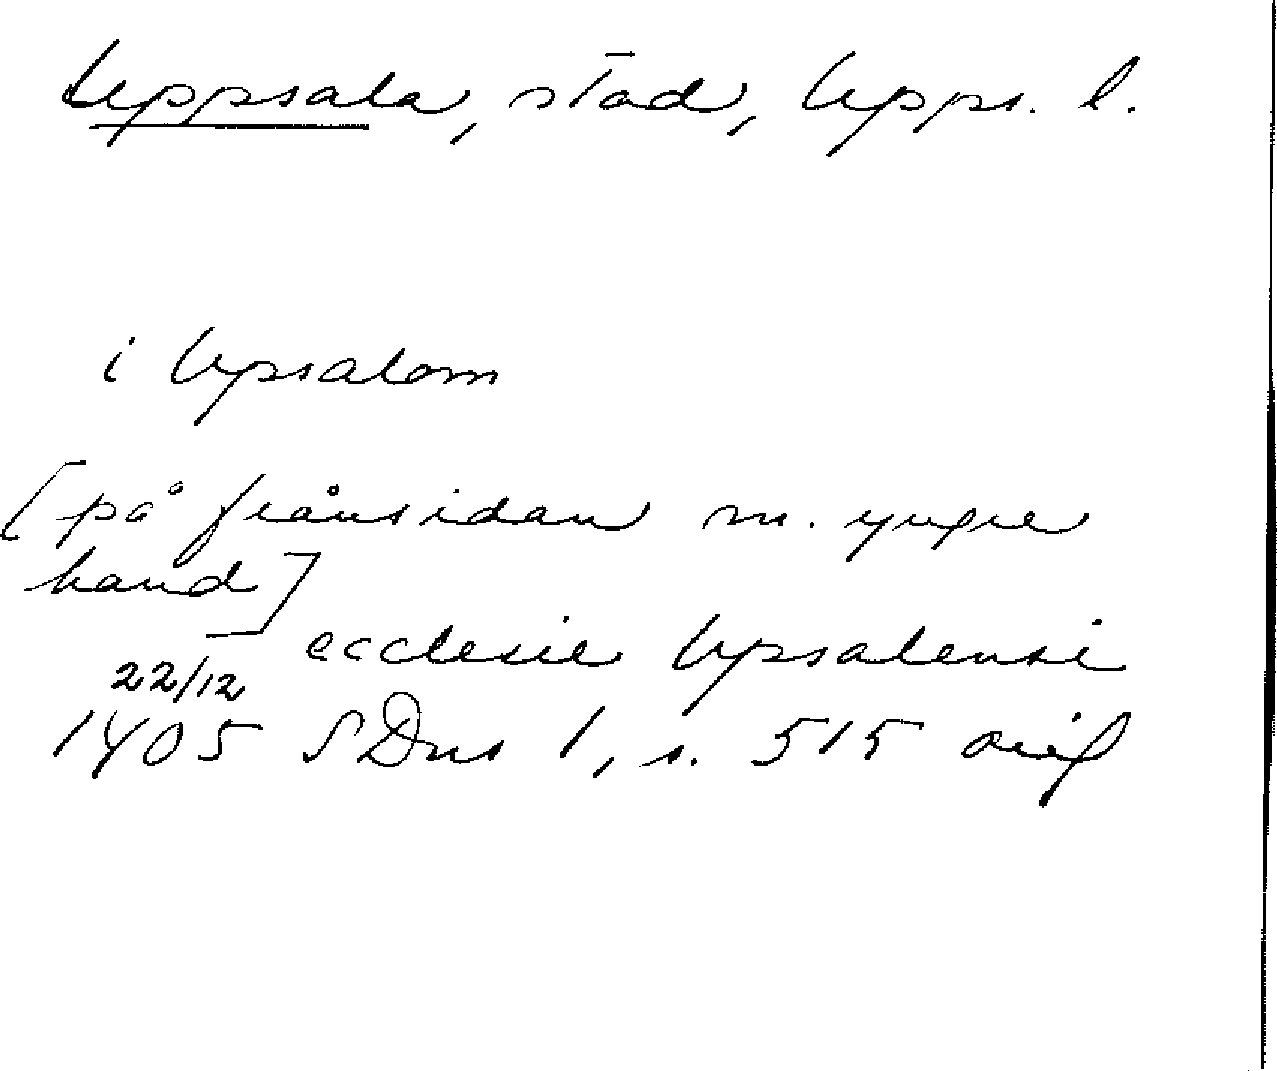 Uppsala, stad, Upps. l.
i Upsalom
[på frånsidan m. yngre
hand]
ecclesie Upsalensi
22/12
1405 SDns 1, s. 515 orig